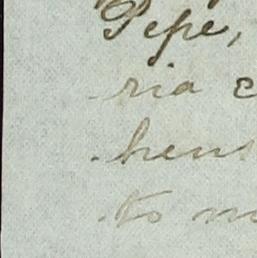 Pepe,
ria e
hens
to no